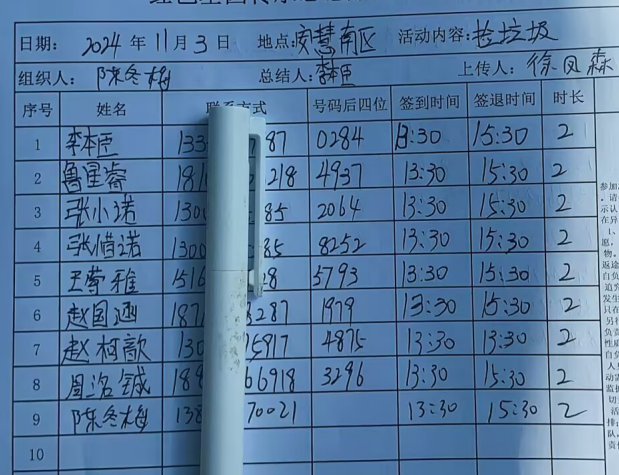 日期: 2024年11月3日 地点:安慧南区 活动内容:捡垃圾
组织人: 陈冬梅 总结人:李本臣 上传人: 徐凤森
序号 姓名 联系方式 号码后四位 签到时间 签退时间 时长
1 李本臣 133 87 0284 13:30 15:30 2
2 181 218 4937 13:30 15:30 2
3 张小诺 130 85 2064 13:30 15:30 2
4 张惜诺 1300 85 8252 13:30 15:30 2
5 1516 28 5793 13:30 15:30 2
6 赵国涵 187 3287 1979 13:30 15:30 2
7 赵柯歆 130 5917 4875 13:30 13:30 2
8 周洺铖 188 66918 3296 13:30 15:30 2
9 陈冬梅 138 70021 13:30 15:30 2
10